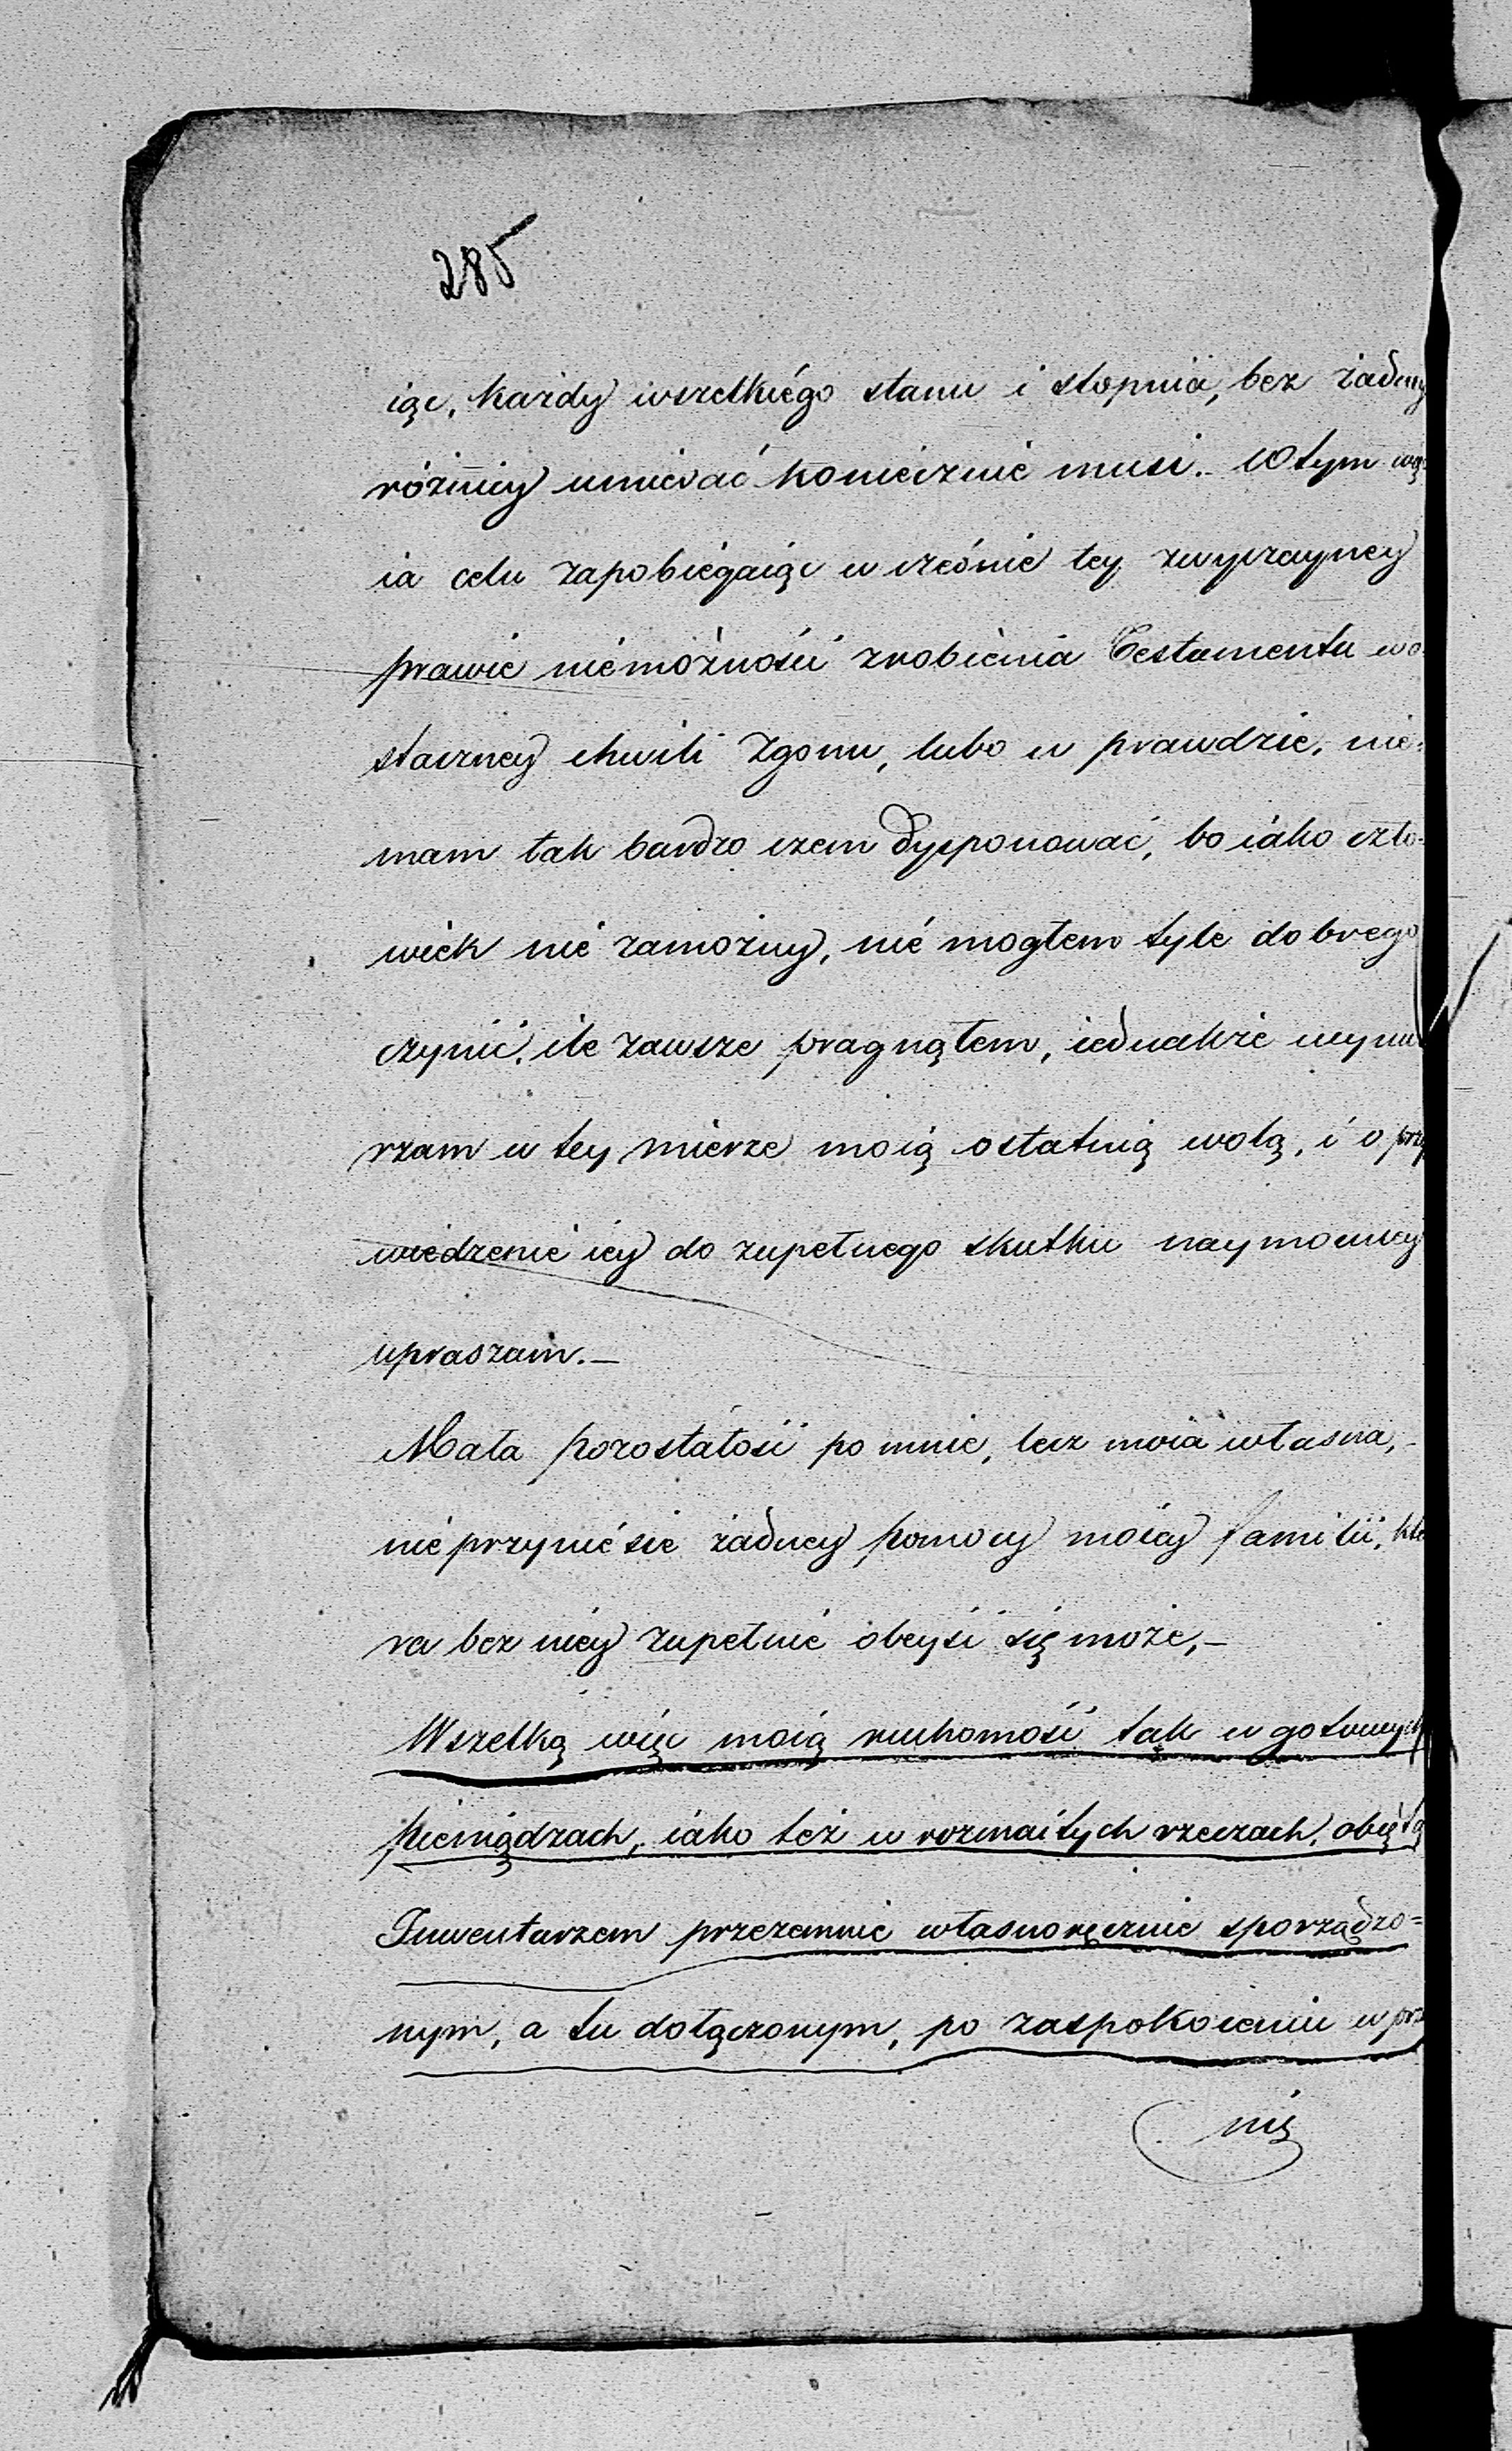 285
iąc, każdy wszelkiégo stanu i stopnia, bez żadney
różnicy umierać koniecznie musi._ W tym
ia celu zapobiégaiąc w cześnie tey zwyczayney
prawie niemożności zrobienia Testamentu w o
staczney chwili Zgonu, lubo w prawdzie, nie=
mam tak bardzo czem dysponować, bo iako czło=
wiek nie zamożny, nié mogłem tyle dobrego
czynić, ile zawsze pragnąłem, iednakże wynu
rzam w tey mierze moią ostatnią wolą, i o przy
wiedzenie iey do zupełnego skutku naymocniey
upraszam._
Mała pozostałość po mnie, lecz moia własna,_
nie przyniésie żadney pomocy moiey familii, któ
ra bez niey zupełnie obeyść się może,_
Wszelką więc moią ruchomość tak w gotowych
pieniądzach, iako też w rozmaitych rzeczach, obiętą
Inwentarzem przezemnie własnoręcznie sporządzo=
nym, a tu dołączonym, po zaspokoieniu w prz
nię